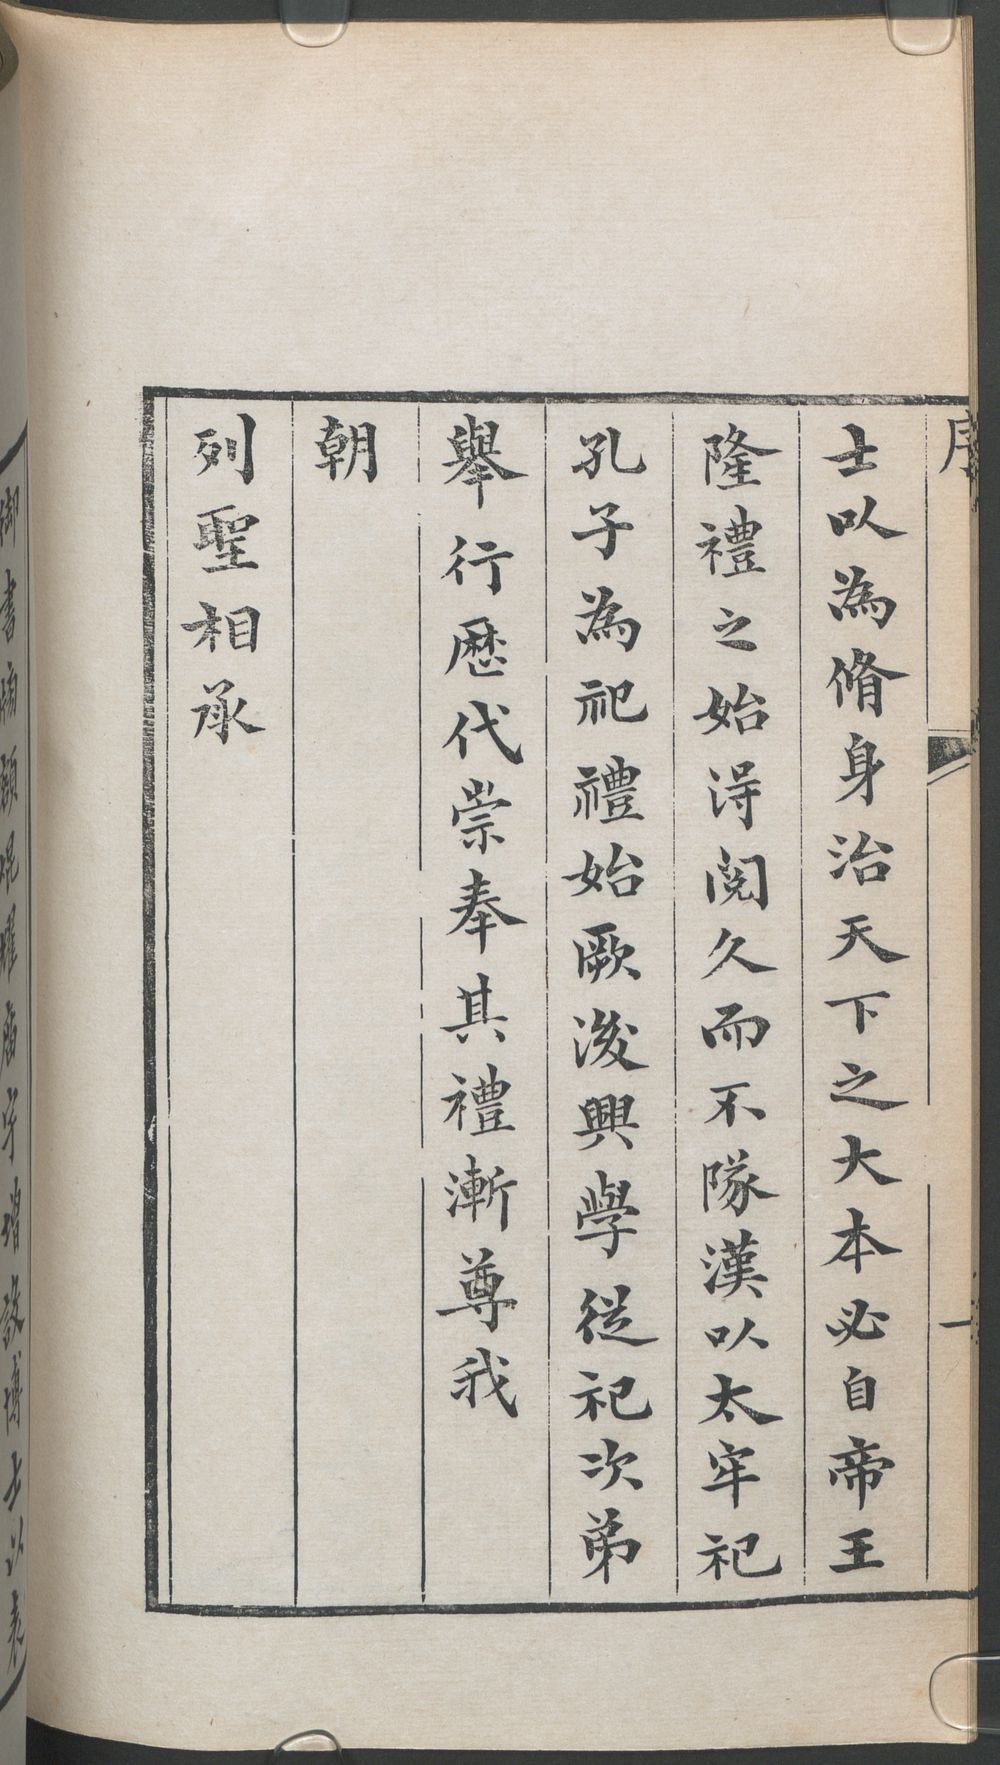 序
一
士以為脩身治天下之大本必自帝王
隆禮之始淂閱久而不隊漢以太牢祀
孔子為祀禮始厥後興學從祀次弟
舉行歷代崇奉其禮漸尊我
朝
列聖相承
御書
增設博士以表